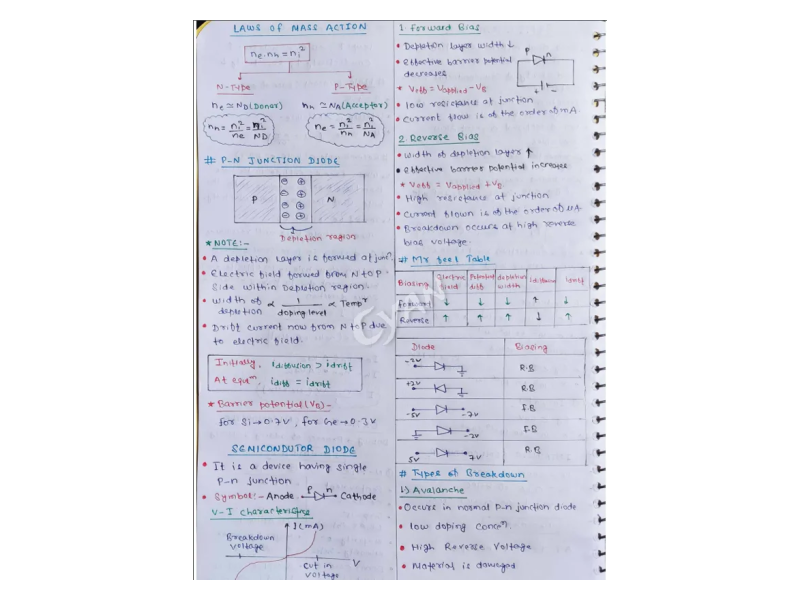 LAWS OF MASS ACTION
ne.nh = ni²
N-Type P-Type
ne ≃ ND(Donor) nh ≃ NA(Acceptor)
nh = ni²/ne = ni²/ND ne = ni²/nh = ni²/NA
# P-N JUNCTION DIODE
P N
Depletion region
* NOTE:-
• A depletion layer is formed at junc
• Electric field formed from N to P-
side within Depletion region.
• Width of depletion ∝ 1/doping level ∝ Tempr
• Drift current flow from N to P due
to electric field.
Initially, idiffusion > idrift
At equm, idiff = idrift
* Barrier potential (VB) -
for Si→0.7V, for Ge→0.3V
SEMICONDUTOR DIODE
• It is a device having single
P-n junction
• Symbol:- Anode P n Cathode
V-I characteristics
I(mA)
Breakdown
voltage
Cut in
voltage
V
1. Forward Bias
• Depletion layer width ↓
• Effective barrier potential
decreases
P n
+ -
* Veff = Vapplied - VB
• low resistance at junction
• Current flow is of the order of mA
2. Reverse Bias
• Width of depletion layer ↑
• Effective barrier potential increases
* Veff = Vapplied + VB
• High resistance at junction
• Current flown is of the order of μA
• Breakdown occurs at high reverse
bias voltage.
# Mr feel Table
Biasing Electric field Potential diff depletion width Idiffusion Idrift
forward ↓ ↓ ↓ ↑ ↓
Reverse ↑ ↑ ↑ ↓ ↑
Diode Biasing
-2V R.B
+2V R.B
-5V -7V F.B
-2V F.B
5V 7V R.B
# Types of Breakdown
1) Avalanche
• Occurs in normal P-n junction diode
• low doping concn.
• High Reverse Voltage
• Material is damaged